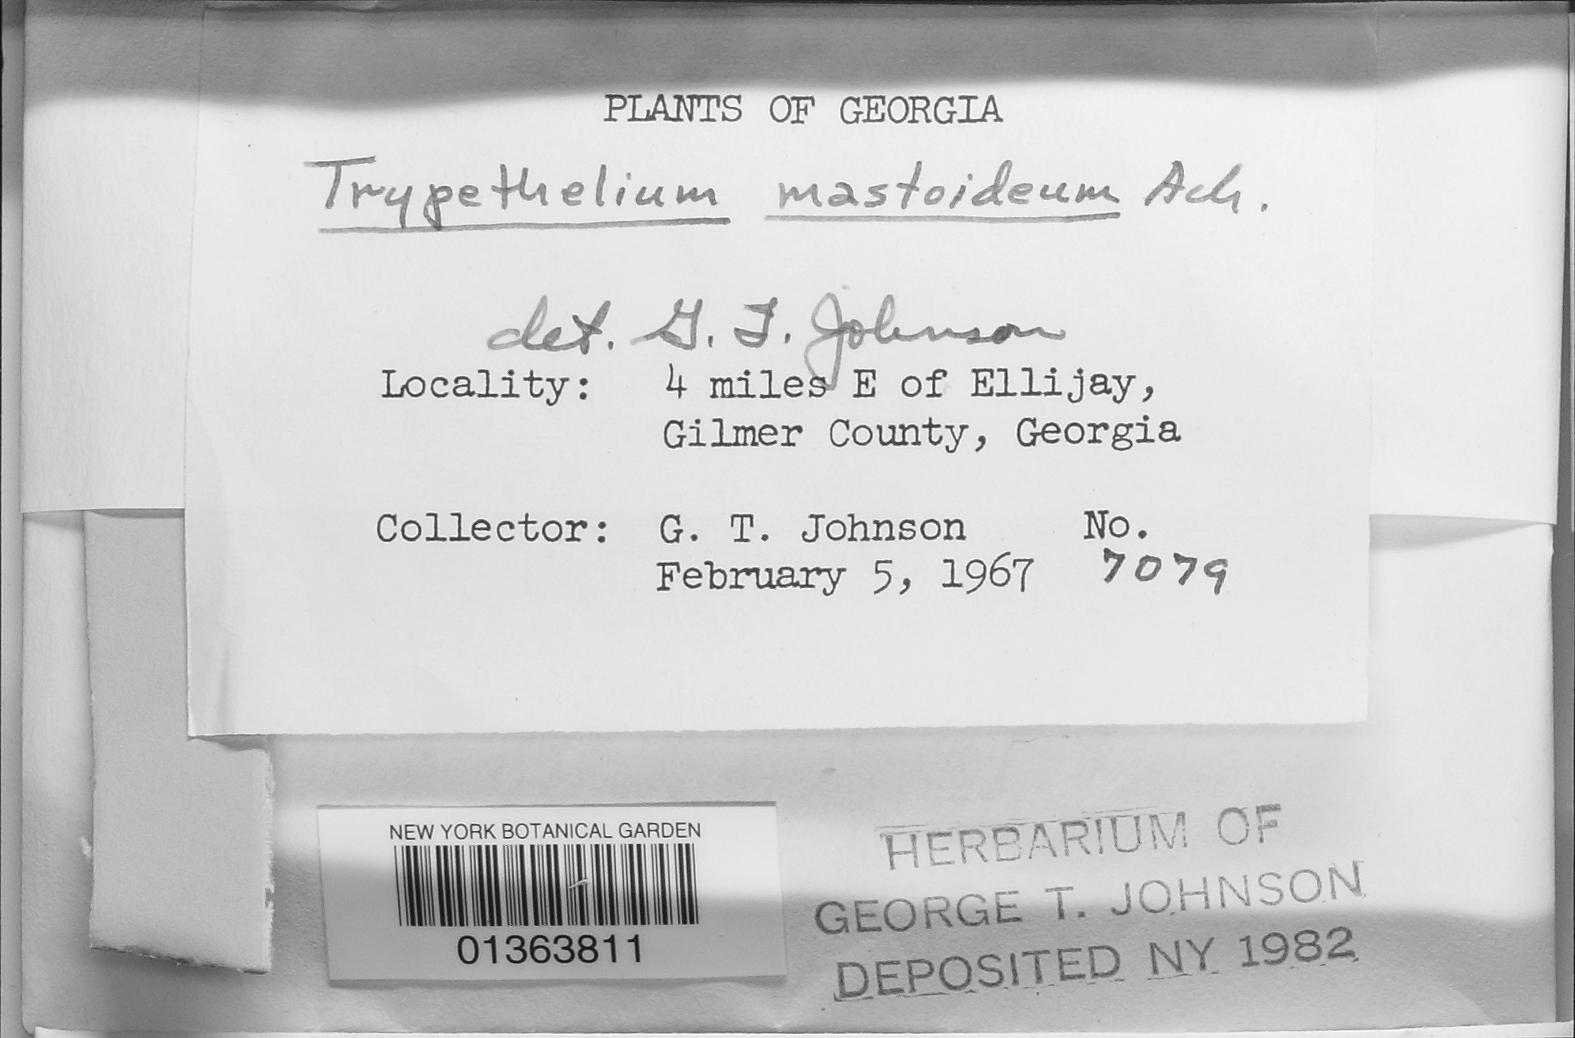 PLANTS OF GEORGIA
Trypethelium mastoideum Ach.
det. G. T. Johnson
Locality: 4 miles E of Ellijay,
Gilmer County, Georgia
Collector: G. T. Johnson No.
February 5, 1967 7079
NEW YORK BOTANICAL GARDEN
01363811
HERBARIUM OF
GEORGE T. JOHNSON
DEPOSITED NY 1982